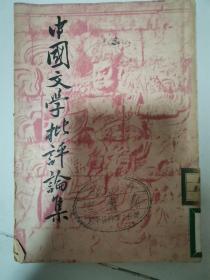 中國文學批評論集